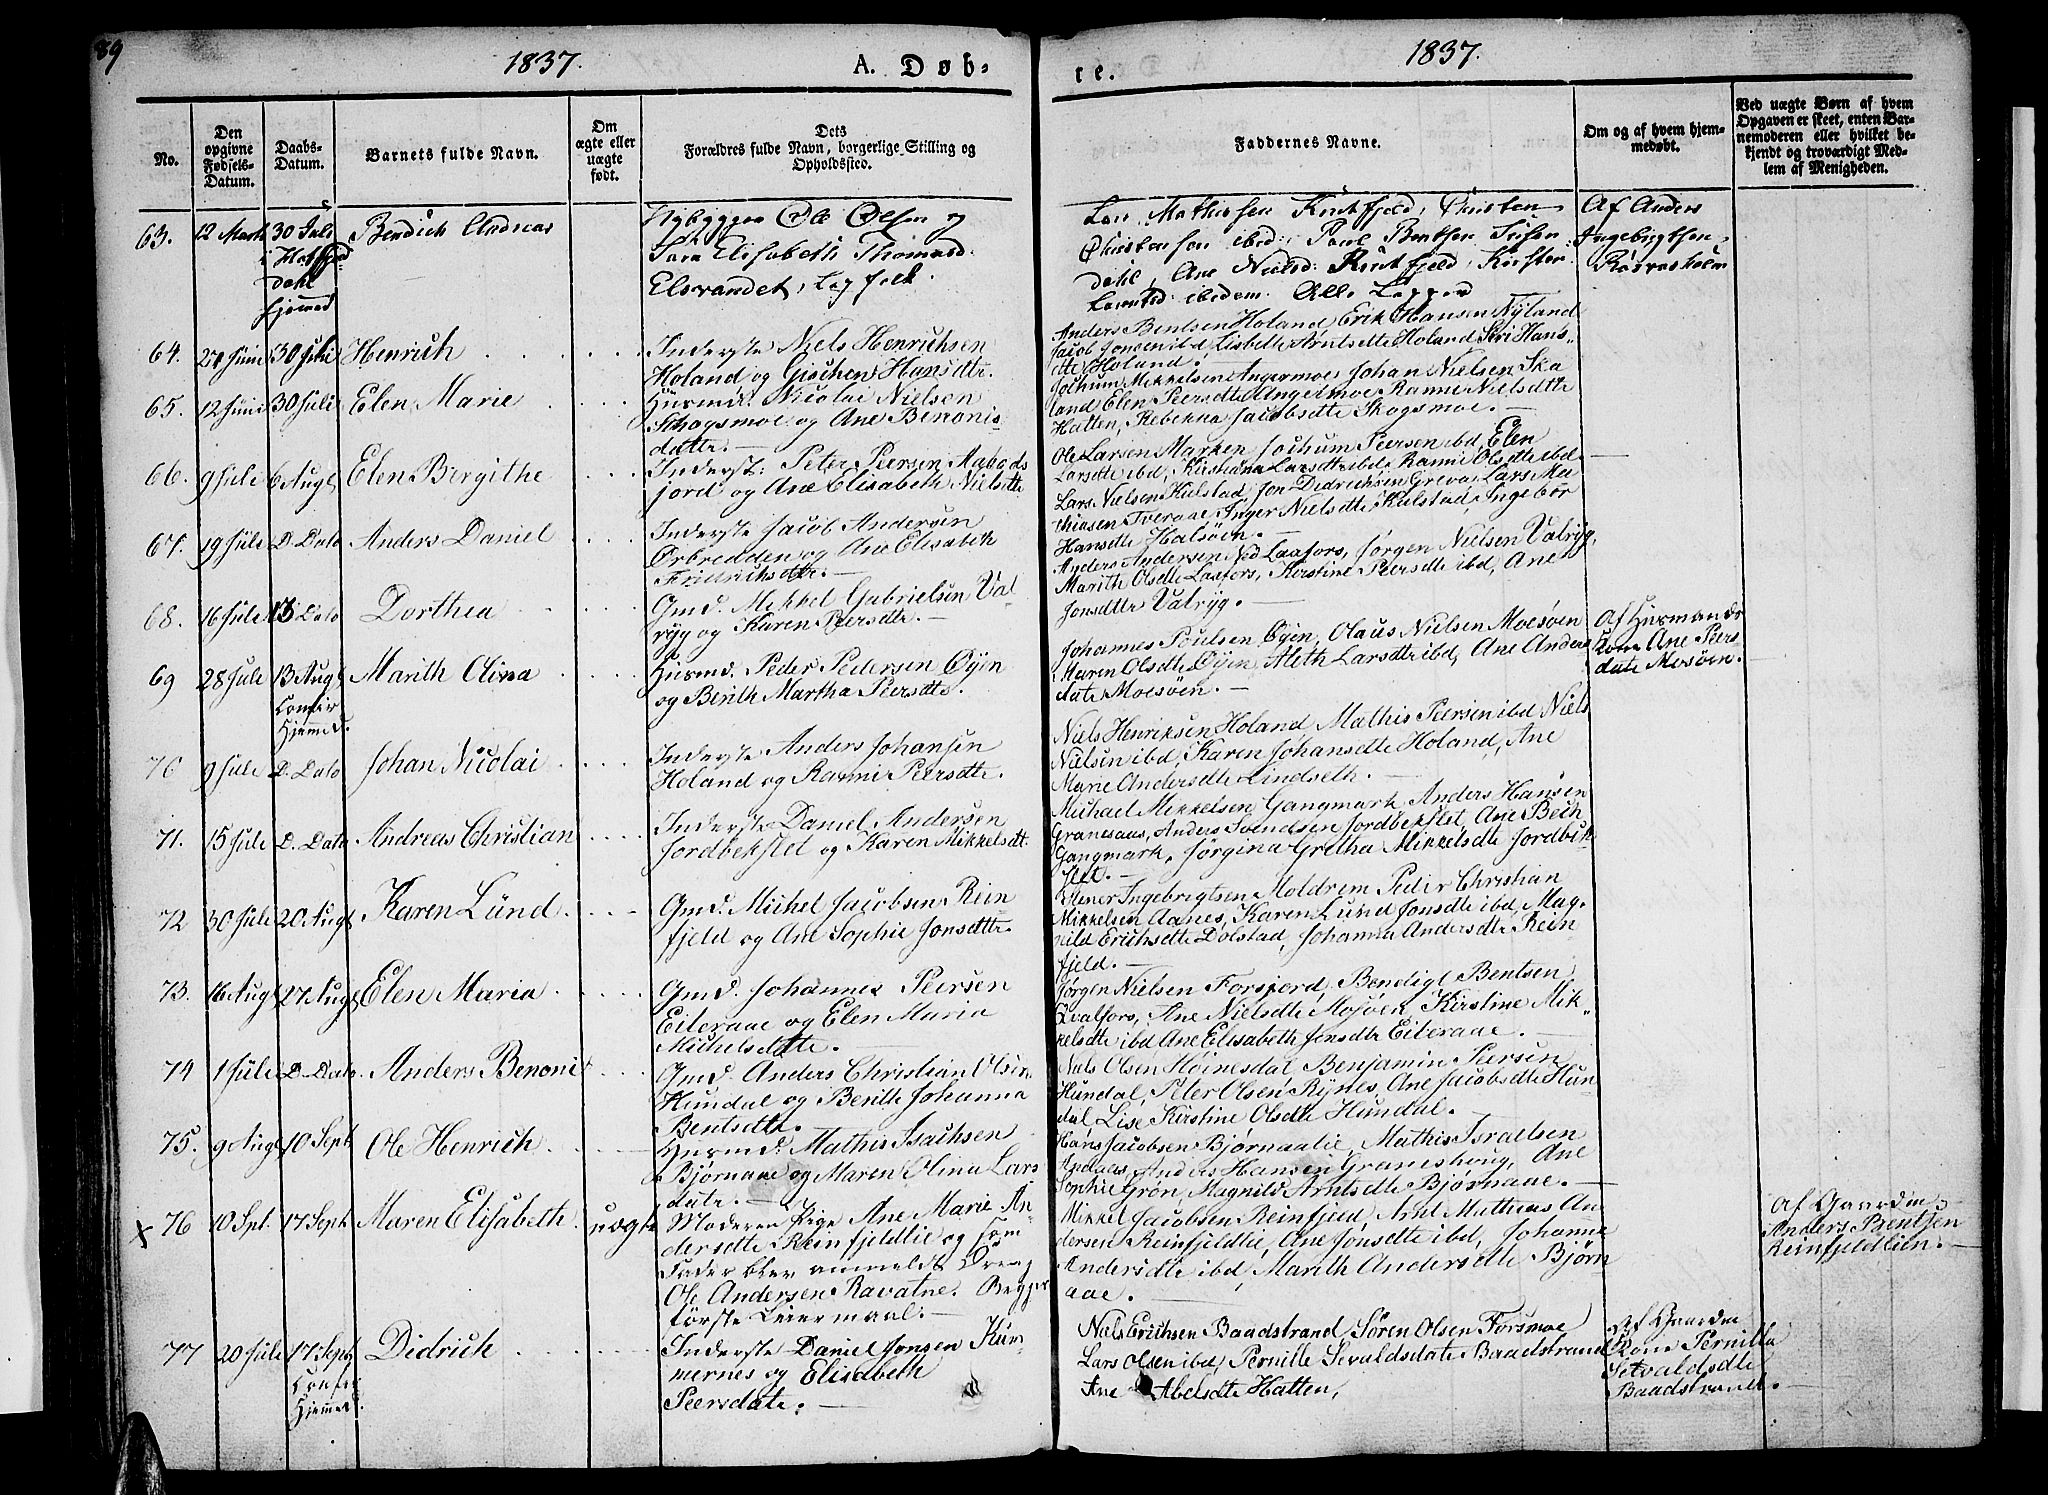 89
1837.
A. Døb-
te.
1837.
No.
Den
opgivne
Fødsels-
Datum.
Daabs-
Datum.
Barnets fulde Navn.
Om
ægte eller
uægte
født.
Dets
Forældres fulde Navn, borgerlige Stilling og
Opholdssted.
Faddernes Navne.
Om og af hvem hjem-
medøbt.
Ved uægte Børn af hvem
Opgaven er skeet, enten Bar-
nemoderen eller hvilket be-
kjendt og troværdigt Med-
lem af Menigheden.
63. 12 Marts 30 Juli Bendich Andreas
i Hatfjeld
dahl
hjemmed
Nybygger Ole Olsen og
Sara Elisabeth Thomasd:
Elsvandet, Lapfolk.
Mathiesen Krutfjeld, Christen
Christensen ibid: Poul Bentsen Susen
dahl, Ane Nielsd: Krutfjeld, Kirsten
Larsd: ibidem. Alle Lapper
Af Anders
Ingebrigtsen
Rösvasholm
64. 27 Juni 30 Juli Henrich
Inderste Niels Henrichsen
Holand og Gischen Hansdtr.
Anders Bentsen Holand, Erik Hansen Nyland
Jacob Jonsen ibd, Lisbeth Arntsdtr Holand Siri Hans-
dtr Holand.
65. 12 Juni 30 Juli Elen Marie
Huusmd. Nicolai Nielsen
Schogsmoe og Ane Benonis
datr.
Jochum Mikkelsen Angermoe, Johan Nielsen Ska
land Elen Peersdtr Angermoe Ranni Nielsdtr
Hatten, Rebekka Jacobsdtr Skogsmoe.
66. 9 Juli 6 Augt Elen Bergithe
Inderst: Peter Peersen Aabods
jord og Ane Elisabeth Nielsdtr
Ole Larsen Marken Jochum Peersen ibd, Elen
Larsdtr ibd, Kirstiana Larsdtr ibd, Ranni Olsdtr ibd
67. 19 Juli D. Dato Anders Daniel
Inderste Jacob Andersen
Ørbredden og Ane Elisabeth
Fridrichsdtr.
Lars Nielsen Kulstad, Jon Didrichsen Greva, Lars Ma
thiasen Tveraae Inger Nielsdtr Kulstad, Ingebor
Hansdtr Halsöen.
68. 16 Juli D. Dato Dorthea
Gmd. Mikkel Gabrielsen Val
ryg og Karen Peersdtr.
Anders Andersen Ned Laafors, Jørgen Nielsen Valryg,
Marith Olsdtr Laafors, Kirstine Peersdtr ibd, Ane
Jonsdtr Valryg.
69 28 Juli 13 Augt Marith Olina
Confir
Hjemmed.
Huusmd. Peder Pedersen Øyen
og Berith Martha Peersdtr.
Johannes Poulsen Øyen, Olaus Nielsen Moesøen
Maren Olsdtr Øyen, Aleth Larsdtr ibd, Ane Anders
datr Moesøen.
Af Huusmands
Kone Ane Peers
datr Mosøen.
70 9 Juli D. Dato Johan Nicolai
Inderste Anders Johansen
Holand og Ranni Peersdtr.
Niels Henriksen Holand, Mathis Peersen ibd Niels
Nielsen ibd, Karen Johansdtr Holand, Ane
Marie Andersdtr Lindseth.
71. 15 Juli D. Dato Andreas Christian
Inderste Daniel Andersen
Jordbekslet og Karen Mikkelsdt.
Michael Mikkelsen Gangmark, Anders Hansen
Granesaas, Anders Svendsen Jordbekslet, Ane Bech
Gangmark, Jørgina Gretha Mikkelsdtr Jordbek
slet.
72 30 Juli 20 Augt Karen Lund
Gmd. Michel Jacobsen Rein
fjeld og Ane Sophie Jonsdtr.
Ingebrigtsen Moldrem Peder Christian
Mikkelsen Aanes, Karen Lund Jonsdtr ibd, Mag-
nild Erichsdtr Dolstad, Johanna Andersdtr Rein
fjeld.
73. 16 Augt 27 Augt Elen Maria
Gmd. Johannes Peersen
Eiteraae og Elen Maria
Michelsdtr.
Jørgen Nielsen Forsjord, Bendigt Bentsen
Qvalfors, Ane Nielsdtr Mosøen Kirstine Mik-
kelsdtr ibd Ane Elisabeth Jonsdtr Eiteraae.
74 1 Juli D. Dato. Anders Benoni
Gmd. Anders Christian Olsen
Hundal og Berith Johanna
Bentsdtr.
Niels Olsen Høinesdal Benjamin Peersen
Hundal, Peter Olsen Rynes, Ane Jacobsdtr Hun
dal Lise Kirstine Olsdtr Hundal.
75. 9 Augt 10 Sept Ole Henrich
Huusmd. Mathis Isachsen
Bjørnaae og Maren Olina Lars
datr.
Hans Jacobsen Bjornaalie, Mathis Israelsen
Anders Hansen Graneshoug, Ane
Sophie Grøn, Magnild Arntsdtr Bjørnaae.
x 76 10 Spt. 17 Sept Maren Elisabeth. uægte
Moderen Pige Ane Marie An
dersdtr Reinfjeldlie og som
Fader blev anmeldt Dreng
Ole Andersen Ravatne. Begges
første Leiermaal.
Mikkel Jacobsen Reinfjeld, Arnt Mathias An
dersen Reinfjeldlie, Ane Jonsdtr ibd, Johanna
Andersdtr ibd, Marith Andersdtr Bjørn
aae.
Af Gaardm
Anders Bentsen
Reinfjeldlien.
77 20 Juli 17 Sept Didrich
Hjemmed
Inderste Daniel Jonsen Kum
mernes og Elisabeth
Peersdatr.
Niels Erichsen Baadstrand, Søren Olsen Forsmoe
Lars Olsen ibd, Pernille Sevaldsdatr Baadstrand
Ane Abelsdtr Hatten,
Af Gaardm
Kone Pernilla
Setvaldsdtr
Baadstrand.